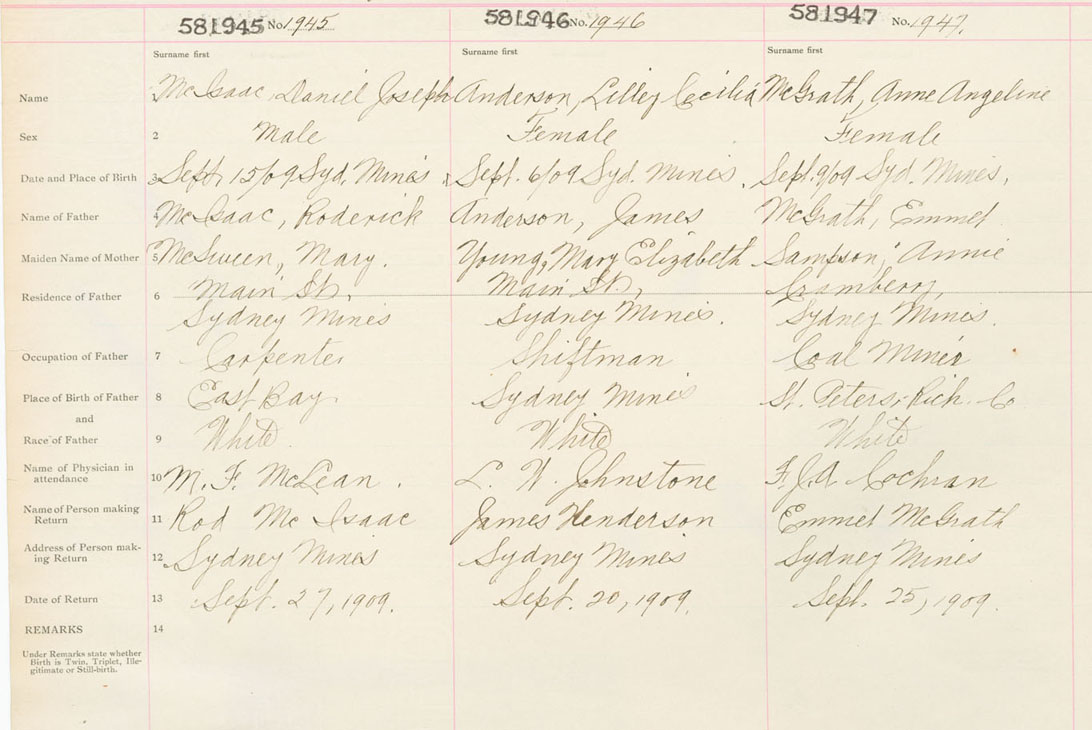 581945 No. 1945 581946 No. 1946 581947 No. 1947.
Surname first Surname first Surname first
Name McIsaac, Daniel Joseph Anderson, Lilley Cecilia McGrath, Anne Angeline
Sex 2 Male Female Female
Date and Place of Birth 3 Sept. 15/09 Syd. Mines Sept. 6/09 Syd. Mines. Sept. 9/09 Syd. Mines.
Name of Father 4 McIsaac, Roderick Anderson, James McGrath, Emmet
Maiden Name of Mother 5 McSween, Mary. Young, Mary Elizabeth Sampson, Annie
Residence of Father 6 Main St., Main St., Cramberry,
Sydney Mines Sydney Mines. Sydney Mines.
Occupation of Father 7 Carpenter Shiftman Coal Miner
Place of Birth of Father 8 East Bay. Sydney Mines St. Peters, Rich. Co
and
Race of Father 9 White. White White
Name of Physician in
attendance 10 M. F. McLean. L. W. Johnstone F. J. A. Cochran
Name of Person making
Return 11 Rod McIsaac James Henderson Emmet McGrath
Address of Person mak-
ing Return 12 Sydney Mines Sydney Mines Sydney Mines
Date of Return 13 Sept. 27, 1909. Sept. 20, 1909. Sept. 25, 1909.
REMARKS 14
Under Remarks state whether
Birth is Twin, Triplet, Ille-
gitimate or Still-birth.